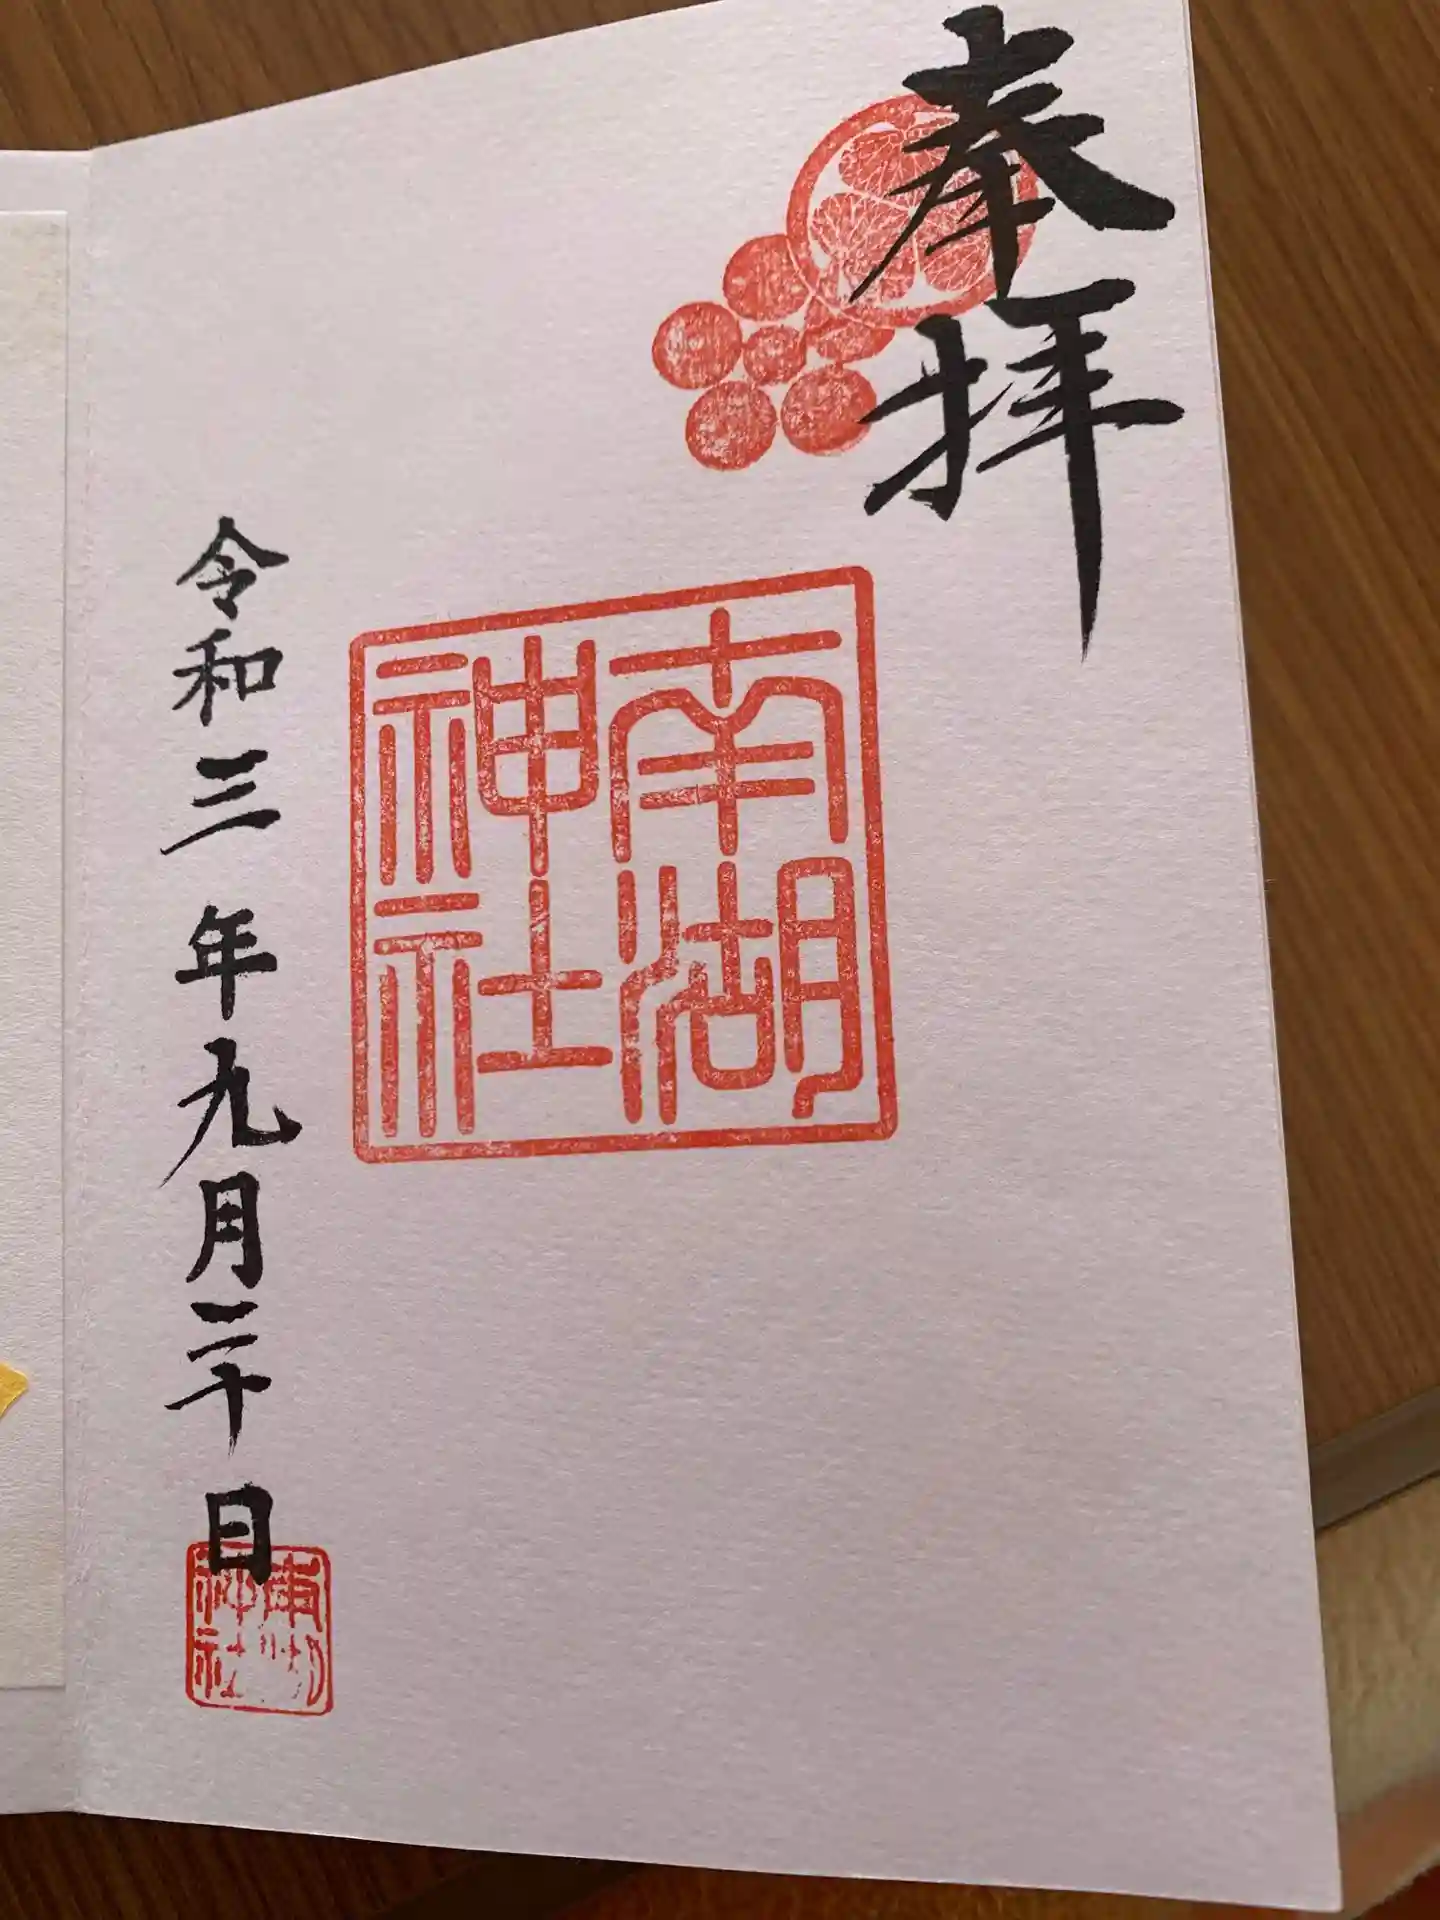 奉拝
南湖
神社
令和三年九月二十日
南湖
神社